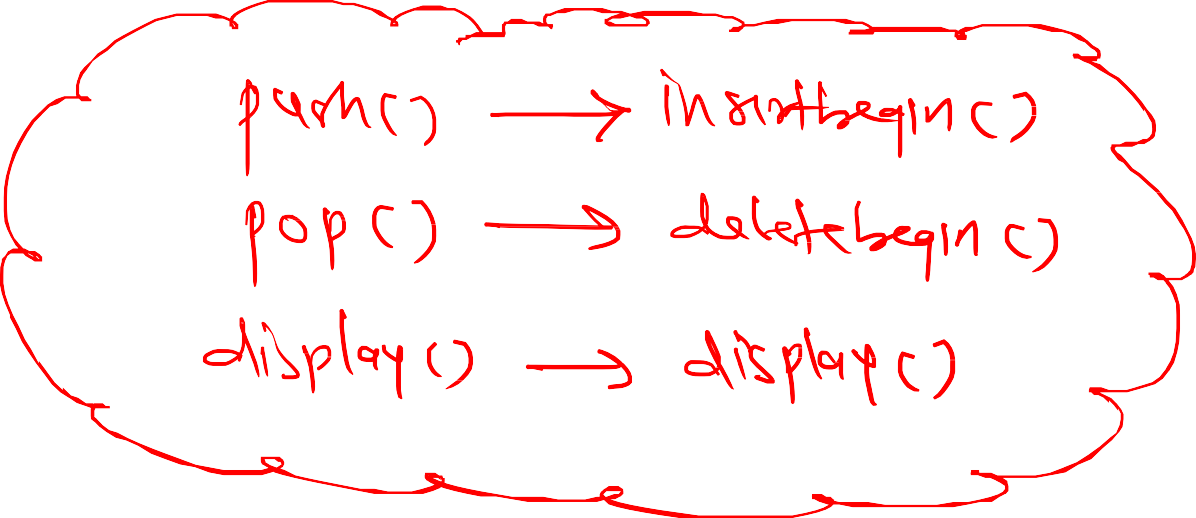 push() → insertbegin()
pop() → deletebegin()
display() → display()